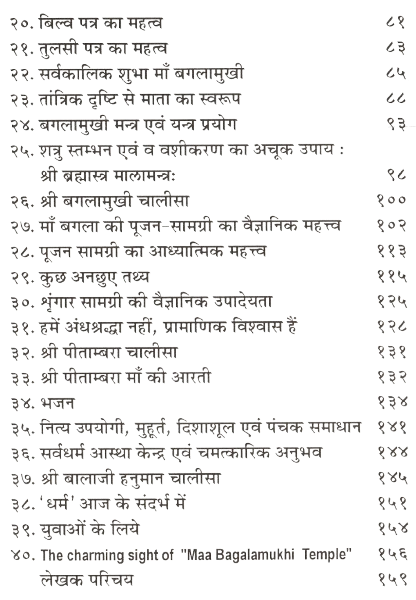 २०. बिल्व पत्र का महत्व ८१
२१. तुलसी पत्र का महत्व ८३
२२. सर्वकालिक शुभा माँ बगलामुखी ८५
२३. तांत्रिक दृष्टि से माता का स्वरूप ८८
२४. बगलामुखी मन्त्र एवं यन्त्र प्रयोग ९३
२५. शत्रु स्तम्भन एवं व वशीकरण का अचूक उपाय :
श्री ब्रह्मास्त्र मालामन्त्रः ९८
२६. श्री बगलामुखी चालीसा १००
२७. माँ बगला की पूजन-सामग्री का वैज्ञानिक महत्त्व १०२
२८. पूजन सामग्री का आध्यात्मिक महत्त्व ११३
२९. कुछ अनछुए तथ्य ११५
३०. शृंगार सामग्री की वैज्ञानिक उपादेयता १२५
३१. हमें अंधश्रद्धा नहीं, प्रामाणिक विश्वास हैं १२८
३२. श्री पीताम्बरा चालीसा १३१
३३. श्री पीताम्बरा माँ की आरती १३२
३४. भजन १३४
३५. नित्य उपयोगी, मुहूर्त, दिशाशूल एवं पंचक समाधान १४१
३६. सर्वधर्म आस्था केन्द्र एवं चमत्कारिक अनुभव १४४
३७. श्री बालाजी हनुमान चालीसा १४५
३८. 'धर्म' आज के संदर्भ में १५१
३९. युवाओं के लिये १५४
४०. The charming sight of "Maa Bagalamukhi Temple" १५६
लेखक परिचय १५९